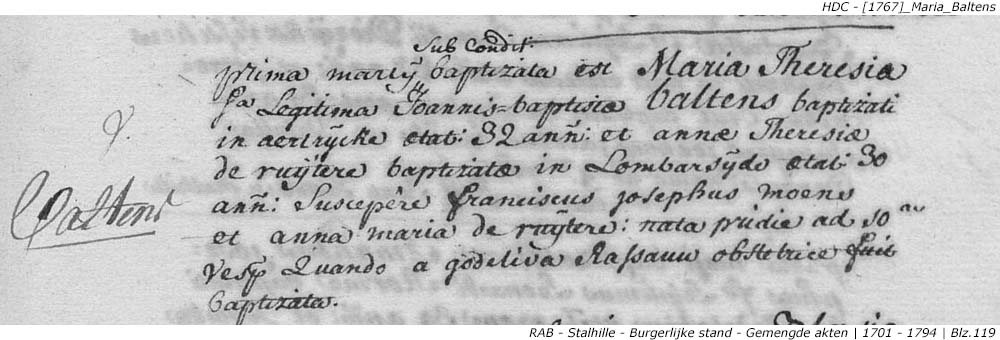 HDC - [1767]_Maria_Baltens
Sub Condit:
prima martÿ baptizata est Maria Theresia
fa Legitima Joannis=baptisiæ baltens baptizati
in aertrÿcke ætat: 32 annõ: et annæ Theresiæ
de ruÿtere baptizatæ in Lombarsÿde ætat: 30
ann̄: Suscepêre franciscus josephus moens
et anna maria de ruÿtere: nata pridie ad 10am
vesp Quando a godeliva Rassauw obstetrice fuit
baptizata.
Baltens
RAB - Stalhille - Burgerlijke stand - Gemengde akten | 1701 - 1794 | Blz.119